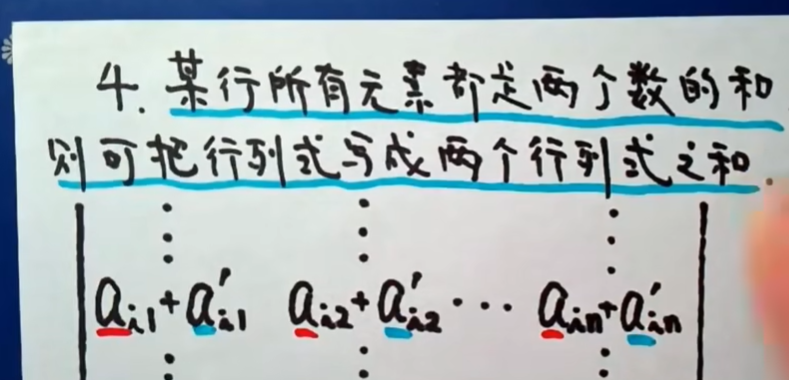 4. 某行所有元素都是两个数的和
则可把行列式写成两个行列式之和.
⋮ ⋮ ⋮
a_{i1}+a'_{i1} a_{i2}+a'_{i2} ⋯ a_{in}+a'_{in}
⋮ ⋮ ⋮